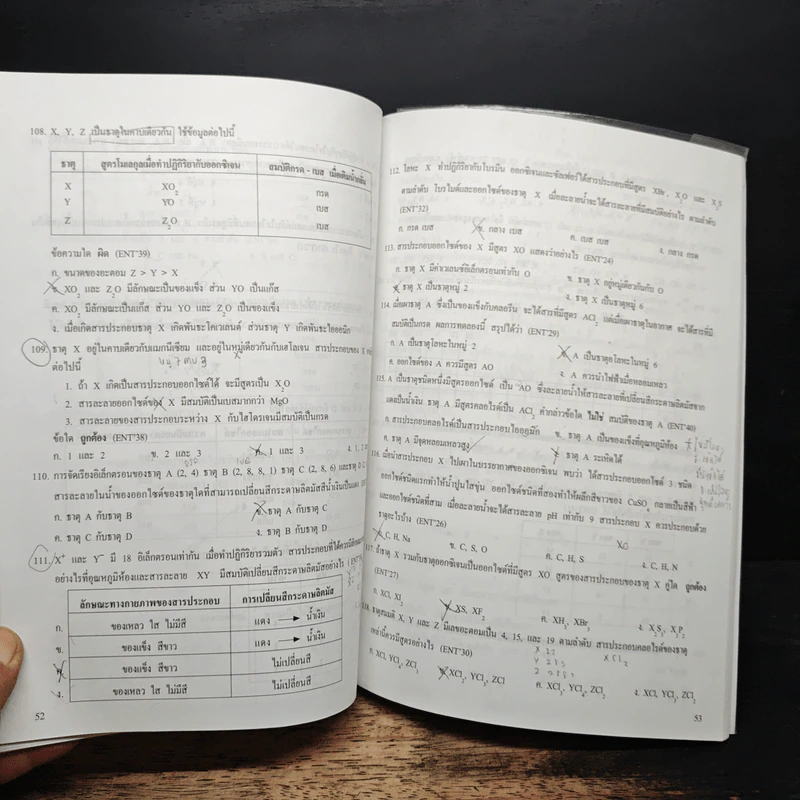 108. X, Y, Z เป็นธาตุในคาบเดียวกัน ใช้ข้อมูลต่อไปนี้
ธาตุ สูตรโมเลกุลเมื่อทำปฏิกิริยากับออกซิเจน สมบัติกรด - เบส เมื่อเติมน้ำกลั่น
X XO₂ กรด
Y YO เบส
Z Z₂O เบส
ข้อความใด ผิด (ENT'39)
ก. ขนาดของอะตอม Z > Y > X
ข. XO₂ และ Z₂O มีลักษณะเป็นของแข็ง ส่วน YO เป็นแก๊ส
ค. XO₂ มีลักษณะเป็นแก๊ส ส่วน YO และ Z₂O เป็นของแข็ง
ง. เมื่อเกิดสารประกอบธาตุ X เกิดพันธะโคเวเลนต์ ส่วนธาตุ Y เกิดพันธะไอออนิก
109. ธาตุ X อยู่ในคาบเดียวกับแมกนีเซียม และอยู่ในหมู่เดียวกันกับเฮโลเจน สารประกอบของ X
หมู่ 7 คาบ 3
ต่อไปนี้
1. ถ้า X เกิดเป็นสารประกอบออกไซด์ได้ จะมีสูตรเป็น X₂O
2. สารละลายออกไซด์ของ X มีสมบัติเป็นเบสมากกว่า MgO
3. สารละลายของสารประกอบระหว่าง X กับไฮโดรเจนมีสมบัติเป็นกรด
ข้อใด ถูกต้อง (ENT'38)
ก. 1 และ 2 ข. 2 และ 3 ค. 1 และ 3 ง. 1, 2
110. การจัดเรียงอิเล็กตรอนของธาตุ A (2, 4) ธาตุ B (2, 8, 8, 1) ธาตุ C (2, 8, 6) และธาตุ D
สารละลายในน้ำของออกไซด์ของธาตุใดที่สามารถเปลี่ยนสีกระดาษลิตมัสสีน้ำเงินเป็นแดง
ก. ธาตุ A กับธาตุ B ข. ธาตุ A กับธาตุ C
ค. ธาตุ C กับธาตุ D ง. ธาตุ B กับธาตุ D
111. X⁺ และ Y⁻ มี 18 อิเล็กตรอนเท่ากัน เมื่อทำปฏิกิริยารวมตัว สารประกอบที่ได้ควรมีลักษณะ
อย่างไรที่อุณหภูมิห้องและสารละลาย XY มีสมบัติเปลี่ยนสีกระดาษลิตมัสอย่างไร
ลักษณะทางกายภาพของสารประกอบ การเปลี่ยนสีกระดาษลิตมัส
ก. ของเหลว ใส ไม่มีสี แดง → น้ำเงิน
ข. ของแข็ง สีขาว แดง → น้ำเงิน
ค. ของแข็ง สีขาว ไม่เปลี่ยนสี
ง. ของเหลว ใส ไม่มีสี ไม่เปลี่ยนสี
52
112. โลหะ X ทำปฏิกิริยากับโบรมีน ออกซิเจนและซัลเฟอร์ได้สารประกอบที่มีสูตร XBr, X₂O และ X₂S
ตามลำดับ โบรไมด์และออกไซด์ของธาตุ X เมื่อละลายน้ำจะได้สารละลายที่มีสมบัติอย่างไร ตามลำดับ
(ENT'32)
ก. กรด เบส ข. กลาง เบส ค. เบส เบส ง. กลาง กรด
113. สารประกอบออกไซด์ของ X มีสูตร XO แสดงว่าอย่างไร (ENT'24)
ก. ธาตุ X มีค่าเวเลนซ์อิเล็กตรอนเท่ากับ O ข. ธาตุ X อยู่หมู่เดียวกันกับ O
ค. ธาตุ X เป็นธาตุหมู่ 2 ง. ธาตุ X เป็นธาตุหมู่ 6
114. เมื่อเผาธาตุ A ซึ่งเป็นของแข็งกับคลอรีน จะได้สารที่มีสูตร ACl₂ แต่เมื่อเผาธาตุในอากาศ จะได้สารที่มี
สมบัติเป็นกรด ผลการทดลองนี้ สรุปได้ว่า (ENT'29)
ก. A เป็นธาตุโลหะในหมู่ 2 ข. A เป็นธาตุอโลหะในหมู่ 6
ค. ออกไซด์ของ A ควรมีสูตร AO ง. A ควรนำไฟฟ้าเมื่อหลอมเหลว
115. A เป็นธาตุชนิดหนึ่งมีสูตรออกไซด์ เป็น AO ซึ่งละลายน้ำให้สารละลายที่เปลี่ยนสีกระดาษลิตมัสจาก
แดงเป็นน้ำเงิน ธาตุ A มีสูตรคลอไรด์เป็น ACl₂ คำกล่าวข้อใด ไม่ใช่ สมบัติของธาตุ A (ENT'40)
ก. สารประกอบคลอไรด์เป็นสารประกอบไอออนิก ข. ธาตุ A เป็นของแข็งที่อุณหภูมิห้อง
ค. ธาตุ A มีจุดหลอมเหลวสูง ง. ธาตุ A ระเหิดได้
116. เมื่อนำสารประกอบ X ไปเผาในบรรยากาศของออกซิเจน พบว่า ได้สารประกอบออกไซด์ 3 ชนิด
ออกไซด์ชนิดแรกทำให้น้ำปูนใสขุ่น ออกไซด์ชนิดที่สองทำให้ผลึกสีขาวของ CuSO₄ กลายเป็นสีฟ้า
และออกไซด์ชนิดที่สาม เมื่อละลายน้ำจะได้สารละลาย pH เท่ากับ 9 สารประกอบ X ควรประกอบด้วย
ธาตุอะไรบ้าง (ENT'26)
ก. C, H, Na ข. C, S, O ค. C, H, S ง. C, H, N
XO
117. ถ้าธาตุ X รวมกับธาตุออกซิเจนเป็นออกไซด์ที่มีสูตร XO สูตรของสารประกอบของธาตุ X คู่ใด ถูกต้อง
(ENT'27)
ก. XCl, XI₂ ข. XS, XF₂ ค. XH₃, XBr₃ ง. X₂S₃, X₃P₂
118. ธาตุสมมติ X, Y และ Z มีเลขอะตอมเป็น 4, 15, และ 19 ตามลำดับ สารประกอบคลอไรด์ของธาตุ
เหล่านี้ควรมีสูตรอย่างไร (ENT'30)
XCl₂
ก. XCl, YCl₃, ZCl₂ ข. XCl₂, YCl₃, ZCl ค. XCl₃, YCl₃, ZCl₂ ง. XCl, YCl₃, ZCl₂
53